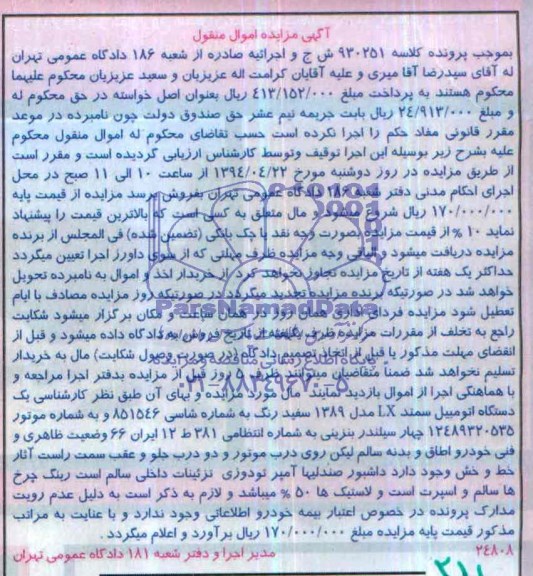 آگهی مزایده اموال منقول
بموجب پرونده کلاسه ۹۳۰۲۵۱ ش ج و اجرائیه صادره از شعبه ۱۸۶ دادگاه عمومی تهران
له آقای سیدرضا آقا میری و علیه آقایان کرامت اله عزیزیان و سعید عزیزیان محکوم علیهما
محکوم هستند به پرداخت مبلغ ۴۱۳/۱۵۲/۰۰۰ ریال بعنوان اصل خواسته در حق محکوم له
و مبلغ ۲٤/۹۱۳/۰۰۰ ریال بابت جریمه نیم عشر حق صندوق دولت چون نامبرده در موعد
مقرر قانونی مفاد حکم را اجرا نکرده است حسب تقاضای محکوم له اموال منقول محکوم
علیه بشرح زیر بوسیله این اجرا توقیف وتوسط کارشناس ارزیابی گردیده است و مقرر است
از طریق مزایده در روز دوشنبه مورخ ۱۳۹٤/۰٤/۲۲ از ساعت ۱۰ الی ۱۱ صبح در محل
اجرای احکام مدنی دفتر شعبه ۱۸۶ دادگاه عمومی تهران بفروش برسد مزایده از قیمت پایه
۱۷۰/۰۰۰/۰۰۰ ریال شروع میشود و مال متعلق به کسی است که بالاترین قیمت را پیشنهاد
نماید ۱۰ % از قیمت مزایده بصورت وجه نقد یا چک بانکی (تضمین شده) فی المجلس از برنده
مزایده دریافت میشود و مابقی وجه مزایده ظرف مهلتی که از سوی دادورز اجرا تعیین میگردد
حداکثر یک هفته از تاریخ مزایده تجاوز نخواهد کرد از خریدار اخذ و اموال به نامبرده تحویل
خواهد شد در صورتیکه برنده مزایده تجدید میگردد در صورتیکه روز مزایده مصادف با ایام
تعطیل شود مزایده فردای اداری همان روز در همان ساعت و مکان برگزار میشود شکایت
راجع به تخلف از مقررات مزایده ظرف یکهفته از تاریخ فروش به دادگاه داده میشود و قبل از
انقضای مهلت مذکور یا قبل از اتخاذ تصمیم دادگاه (در صورت وصول شکایت) مال به خریدار
تسلیم نخواهد شد ضمناً متقاضیان میتوانند ظرف ۵ روز قبل از مزایده بدفتر اجرا مراجعه و
با هماهنگی اجرا از اموال بازدید نمایند مال مورد مزایده و بهای آن طبق نظر کارشناسی یک
دستگاه اتومبیل سمند LX مدل ۱۳۸۹ سفید رنگ به شماره شاسی ۸۵۱۵٤۶ و به شماره موتور
۱۲٤۸۹۳۲۰۵۳۵ چهار سیلندر بنزینی به شماره انتظامی ۳۸۱ ط ۱۲ ایران ۶۶ وضعیت ظاهری و
فنی خودرو اطاق و بدنه سالم لیکن روی درب موتور و دو درب جلو و عقب سمت راست آثار
خط و خش وجود دارد داشبور صندلیها آمپر تودوزی تزئینات داخلی سالم است رینگ چرخ
ها سالم و اسپرت است و لاستیک ها ۵۰ % میباشد و لازم به ذکر است به دلیل عدم رویت
مدارک پرونده در خصوص اعتبار بیمه خودرو اطلاعاتی وجود ندارد و با عنایت به مراتب
مذکور قیمت پایه مزایده مبلغ ۱۷۰/۰۰۰/۰۰۰ ریال برآورد و اعلام میگردد .
۲٤۸۰۸ مدیر اجرا و دفتر شعبه ۱۸۱ دادگاه عمومی تهران
۲۱۱
ParsNamadData
پایگاه اطلاع رسانی مناقصه و مزایده
۰۲۱-۸۸۳۴۹۶۷۰-۵